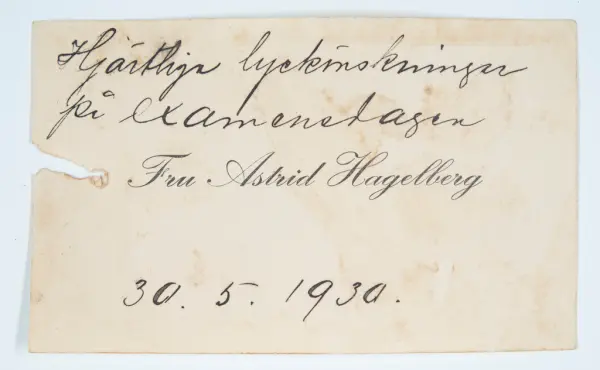 Hjärtliga lyckönskningar
på examensdagen
Fru Astrid Hagelberg
30. 5. 1930.